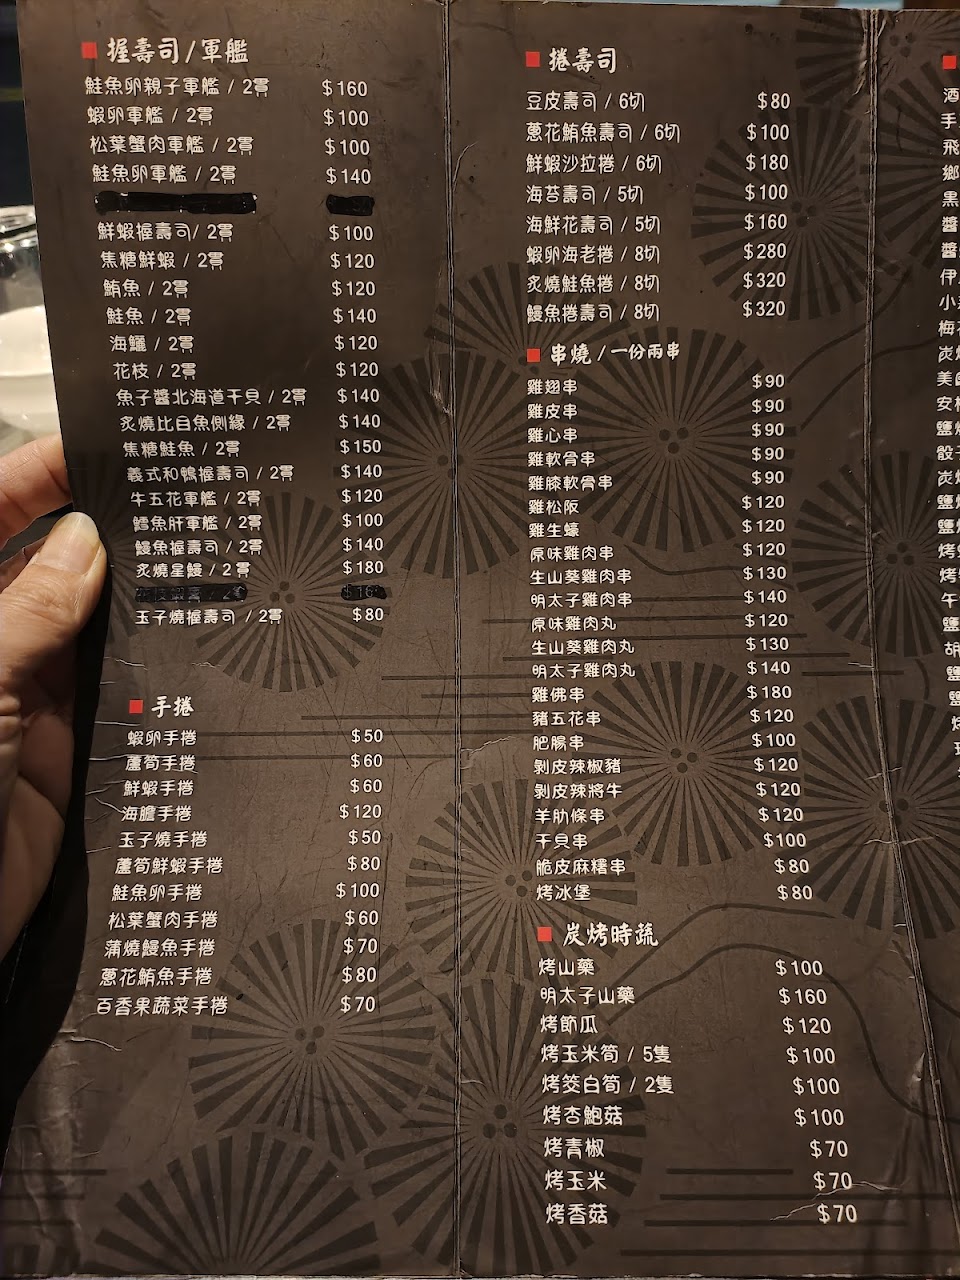 握壽司/軍艦
鮭魚卵親子軍艦 / 2貫 $160
蝦卵軍艦 / 2貫 $100
松葉蟹肉軍艦 / 2貫 $100
鮭魚卵軍艦 / 2貫 $140
鮮蝦握壽司/ 2貫 $100
焦糖鮮蝦 / 2貫 $120
鮪魚 / 2貫 $120
鮭魚 / 2貫 $140
海鱺 / 2貫 $120
花枝 / 2貫 $120
魚子醬北海道干貝 / 2貫 $140
炙燒比目魚側緣 / 2貫 $140
焦糖鮭魚 / 2貫 $150
義式和鴨握壽司 / 2貫 $140
牛五花軍艦 / 2貫 $120
鱈魚肝軍艦 / 2貫 $100
鰻魚握壽司 / 2貫 $140
炙燒星鰻 / 2貫 $180
玉子燒握壽司 / 2貫 $80
手捲
蝦卵手捲 $50
蘆筍手捲 $60
鮮蝦手捲 $60
海膽手捲 $120
玉子燒手捲 $50
蘆筍鮮蝦手捲 $80
鮭魚卵手捲 $100
松葉蟹肉手捲 $60
蒲燒鰻魚手捲 $70
蔥花鮪魚手捲 $80
百香果蔬菜手捲 $70
捲壽司
豆皮壽司 / 6切 $80
蔥花鮪魚壽司 / 6切 $100
鮮蝦沙拉捲 / 6切 $180
海苔壽司 / 5切 $100
海鮮花壽司 / 5切 $160
蝦卵海老捲 / 8切 $280
炙燒鮭魚捲 / 8切 $320
鰻魚捲壽司 / 8切 $320
串燒 / 一份兩串
雞翅串 $90
雞皮串 $90
雞心串 $90
雞軟骨串 $90
雞膝軟骨串 $90
雞松阪 $120
雞生蠔 $120
原味雞肉串 $120
生山葵雞肉串 $130
明太子雞肉串 $140
原味雞肉丸 $120
生山葵雞肉丸 $130
明太子雞肉丸 $140
雞佛串 $180
豬五花串 $120
肥腸串 $100
剝皮辣椒豬 $120
剝皮辣將牛 $120
羊肋條串 $120
干貝串 $100
脆皮麻糬串 $80
烤冰堡 $80
炭烤時蔬
烤山藥 $100
明太子山藥 $160
烤節瓜 $120
烤玉米筍 / 5隻 $100
烤筊白筍 / 2隻 $100
烤杏鮑菇 $100
烤青椒 $70
烤玉米 $70
烤香菇 $70